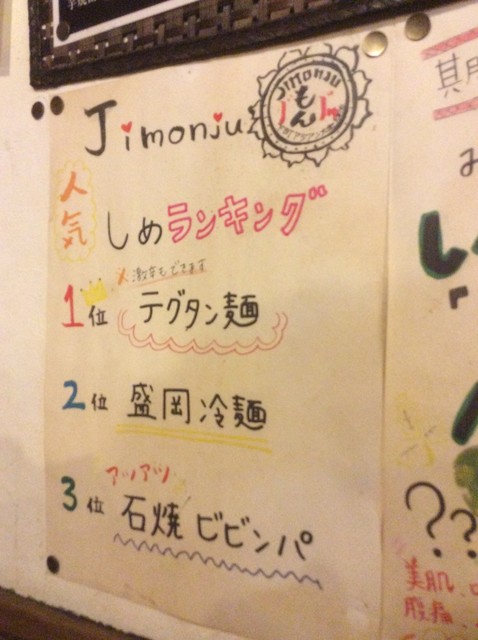 Jimonju
JIMONJU
じもんじゅ
人気
しめランキング
激辛もできます
1位 テグタン麺
2位 盛岡冷麺
アツアツ
3位 石焼ビビンパ
??
美肌
腹痛